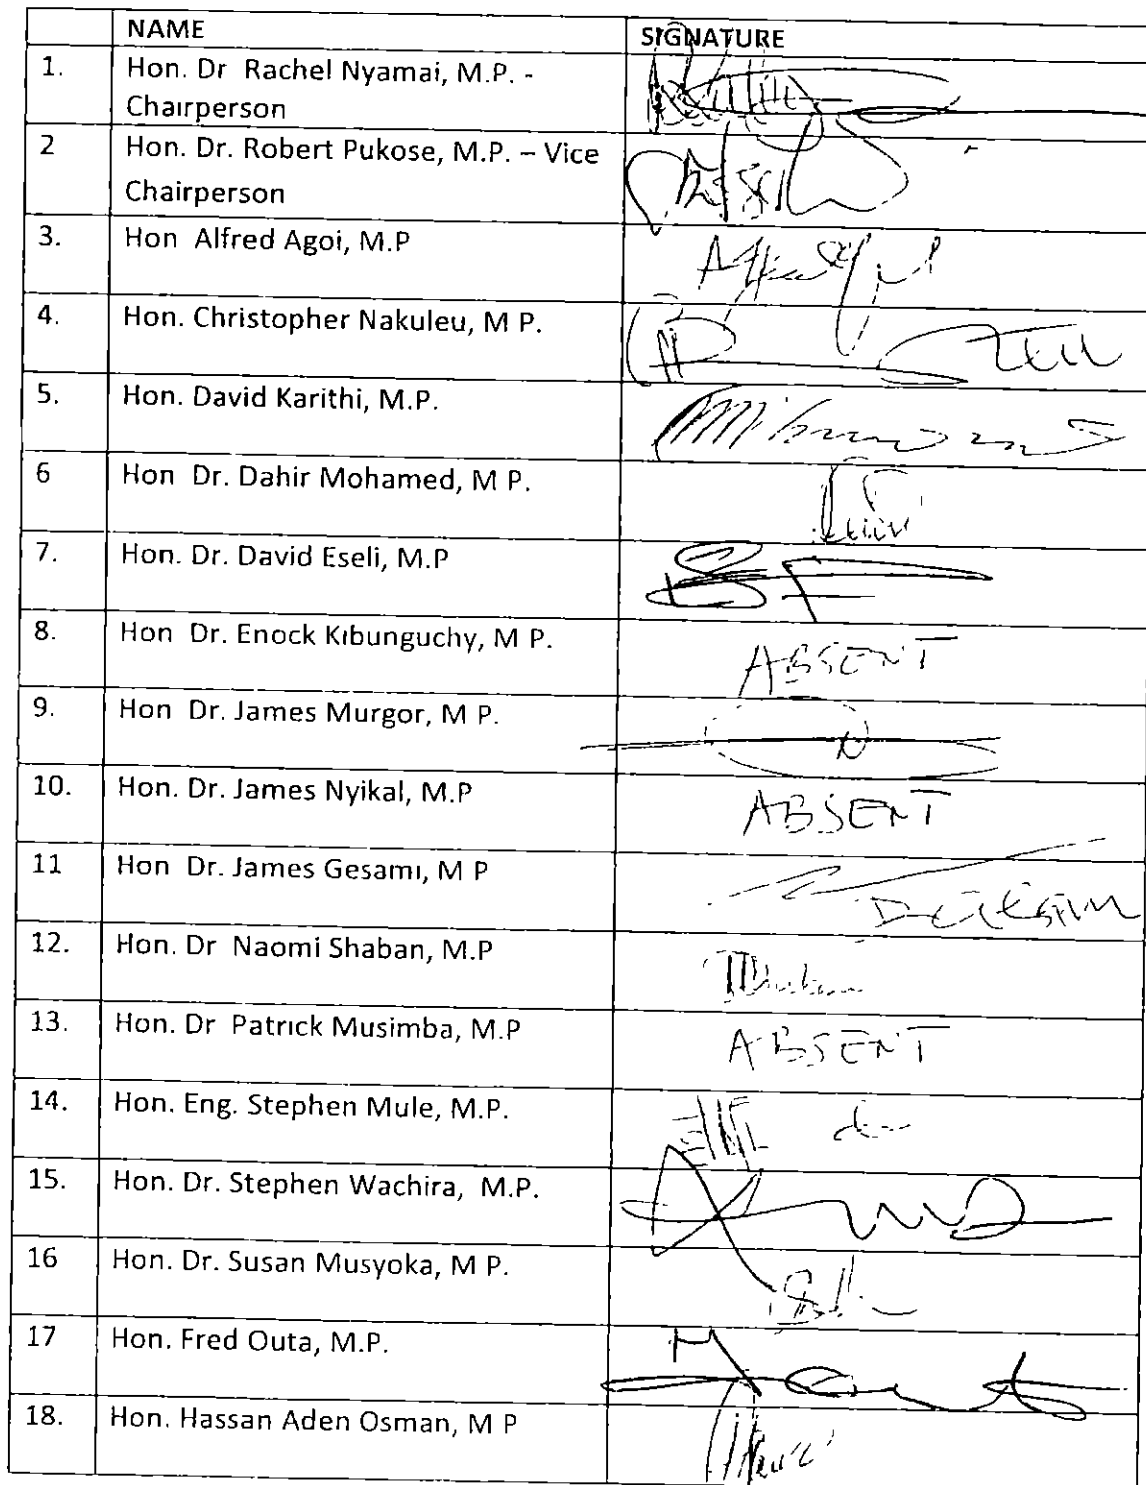 NAME SIGNATURE
1. Hon. Dr Rachel Nyamai, M.P. -
Chairperson
2 Hon. Dr. Robert Pukose, M.P. – Vice
Chairperson
3. Hon Alfred Agoi, M.P
4. Hon. Christopher Nakuleu, M P.
5. Hon. David Karithi, M.P.
6 Hon Dr. Dahir Mohamed, M P.
7. Hon. Dr. David Eseli, M.P
8. Hon Dr. Enock Kibunguchy, M P. ABSENT
9. Hon Dr. James Murgor, M P.
10. Hon. Dr. James Nyikal, M.P ABSENT
11 Hon Dr. James Gesami, M P
12. Hon. Dr Naomi Shaban, M.P
13. Hon. Dr Patrick Musimba, M.P ABSENT
14. Hon. Eng. Stephen Mule, M.P.
15. Hon. Dr. Stephen Wachira, M.P.
16 Hon. Dr. Susan Musyoka, M P.
17 Hon. Fred Outa, M.P.
18. Hon. Hassan Aden Osman, M P